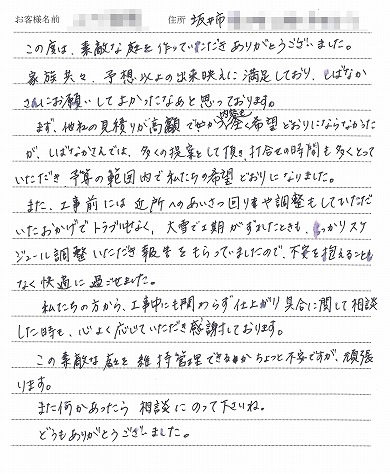 お客様名前 住所 坂井市
この度は、素敵な庭を作っていただきありがとうございました。
家族共々、予想以上の出来映えに満足しており、しばなか
さんにお願いしてよかったなあと思っております。
まず、他社の見積りが高額で 内容も 全く希望どおりにならなかった
が、しばなかさんでは、多くの提案をして頂き、打合せの時間も多くとって
いただき 予算の範囲内で私たちの希望どおりになりました。
また、工事前には近所へのあいさつ回りや調整もしていただい
いたおかげでトラブルなく、大雪で工期がずれたときも、しっかりスケ
ジュール調整いただき報告をもらっていましたので、不安を抱えること
なく快適に過ごせました。
私たちの方から、工事中にも関わらず仕上がり具合に関して相談
した時も、心よく応じていただき感謝しております。
この素敵な庭を維持管理できるか ちょっと不安ですが、頑張
ります。
また何かあったら 相談にのって下さいね。
どうもありがとうございました。